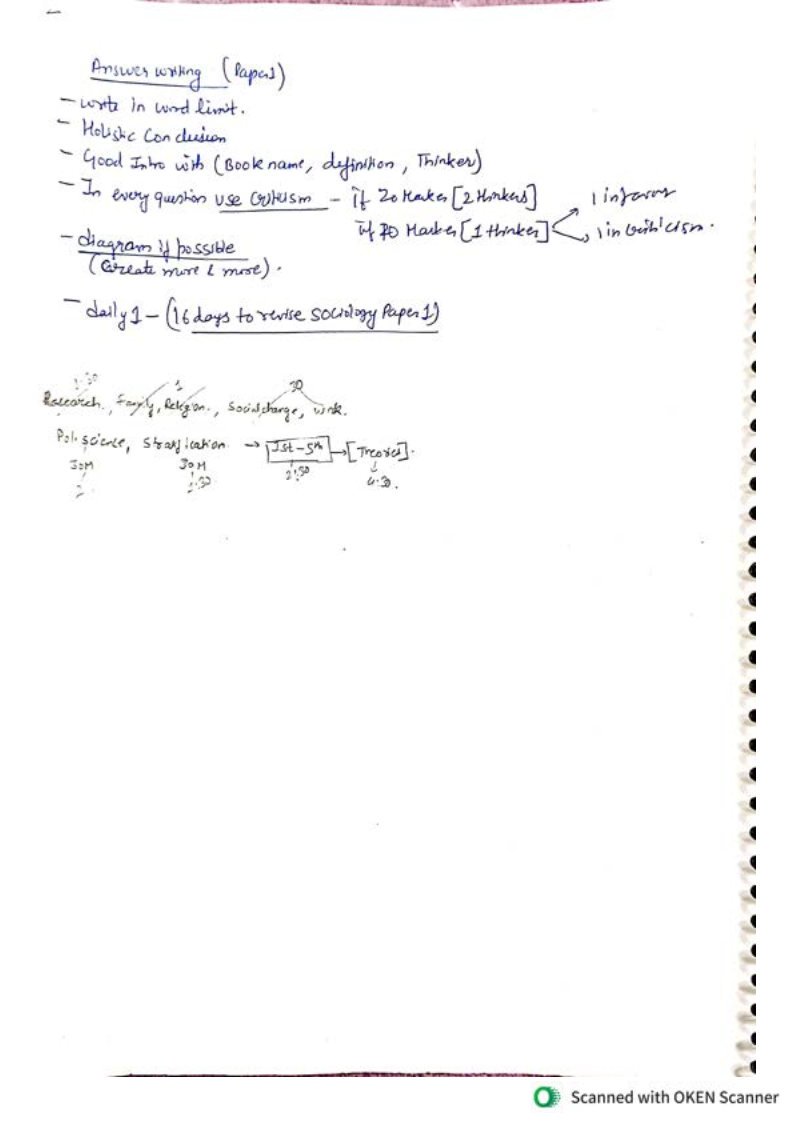 Answer writing (Paper1)
- write in word limit.
- Holistic Conclusion
- Good Intro with (Book name, definition, Thinker)
- In every question use Critism - if 20 Marker [2 thinkers] 1 in favour
if 10 Marker [1 thinker] 1 in Criticism.
- diagram if possible
(Create more & more).
- daily 1 - (16 days to revise Sociology Paper 1)
1:30 1 30
Research, Family, Religion, Social change, work.
Pol. science, Stratification → 1st - 5th → [Theories].
30M 30M 2:30 4:30.